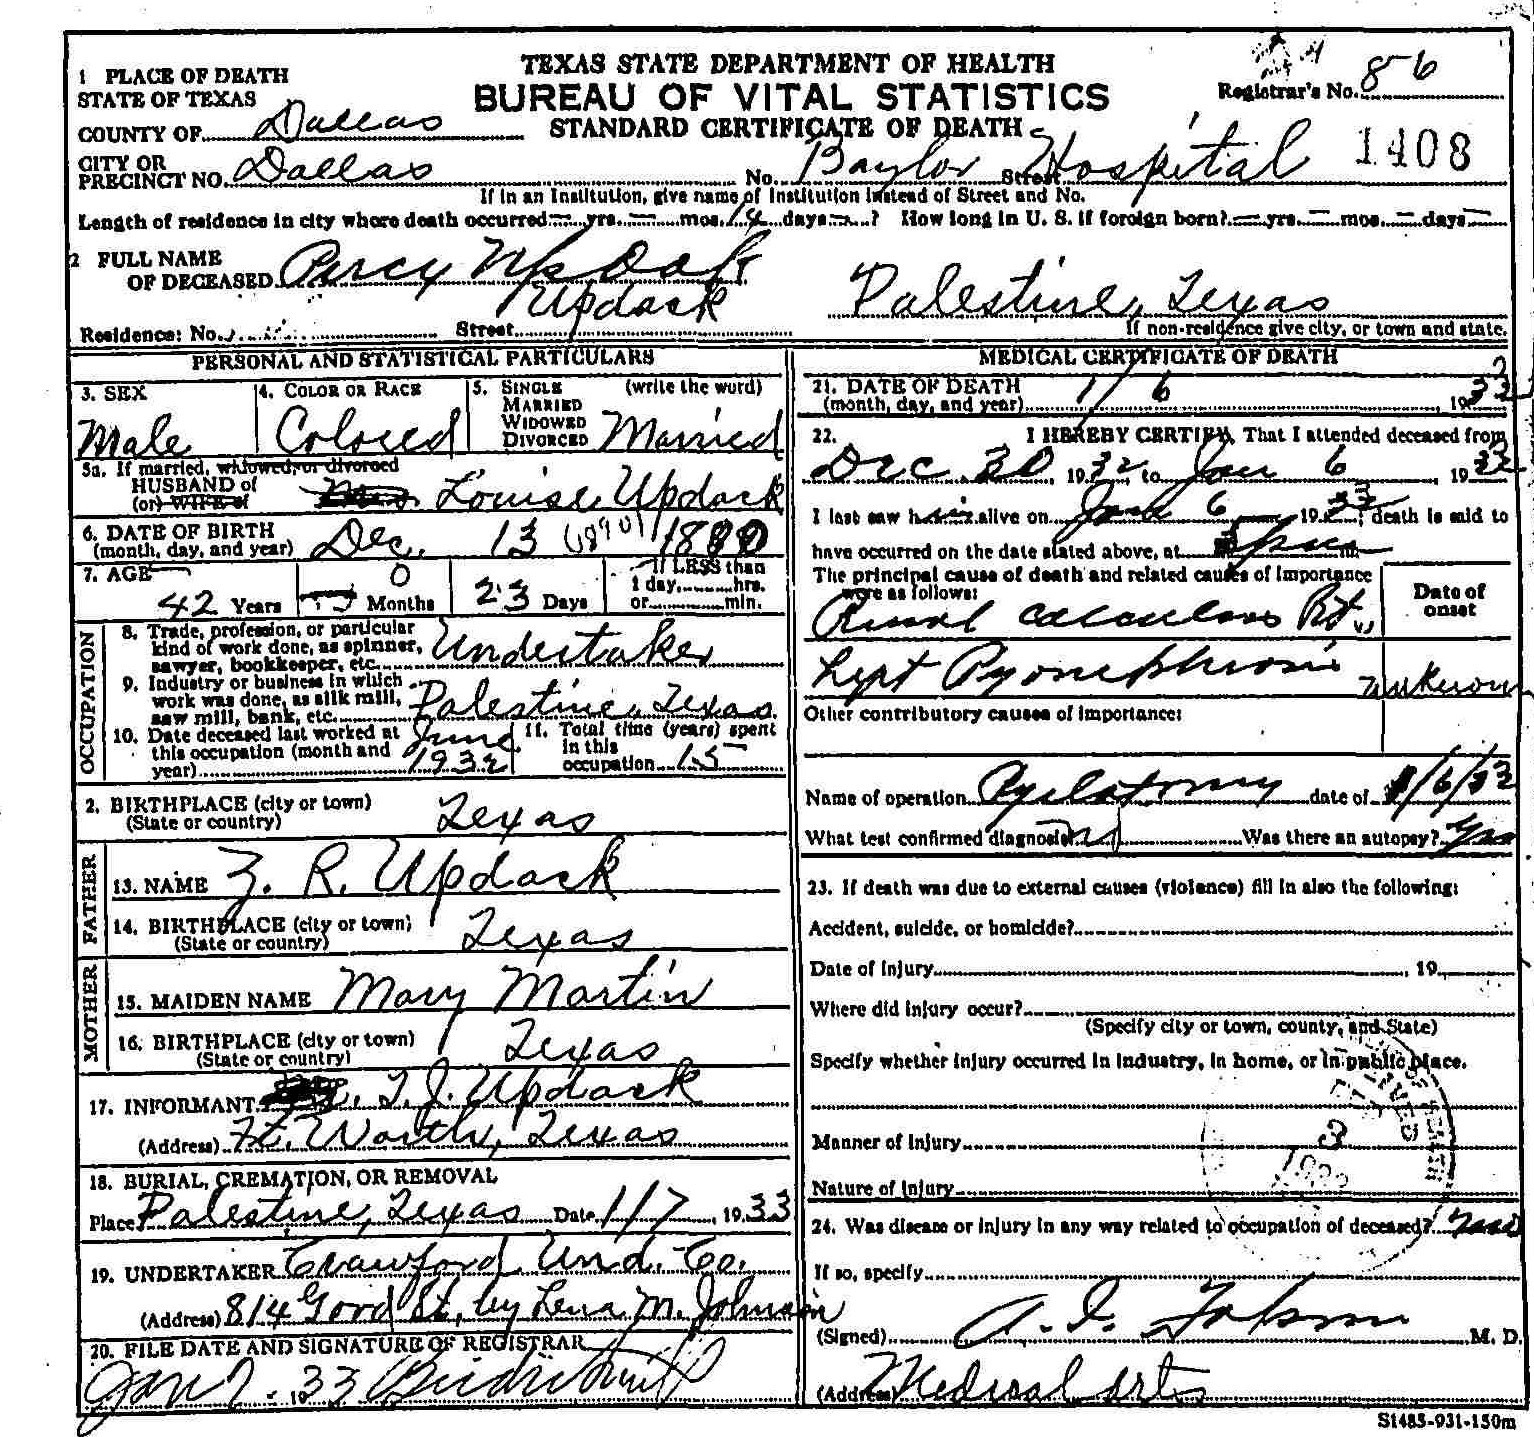 TEXAS STATE DEPARTMENT OF HEALTH
BUREAU OF VITAL STATISTICS
STANDARD CERTIFICATE OF DEATH
Registrar's No. 86
1408
1 PLACE OF DEATH
STATE OF TEXAS
COUNTY OF Dallas
CITY OR
PRECINCT NO. Dallas No. Baylor Street Hospital
If in an Institution, give name of Institution instead of Street and No.
Length of residence in city where death occurred — yrs. — mos. 14 days —? How long in U. S. if foreign born? — yrs. — mos. — days —
2 FULL NAME
OF DECEASED Percy
Updack
Palestine, Texas
Residence: No. Street
If non-residence give city, or town and state.
PERSONAL AND STATISTICAL PARTICULARS
3. SEX
Male
4. COLOR OR RACE
Colored
5. SINGLE (write the word)
MARRIED
WIDOWED
DIVORCED Married
5a. If married, widowed, or divorced
HUSBAND of
(or) WIFE of Louise Updack
6. DATE OF BIRTH
(month, day, and year) Dec. 13 (1890)
7. AGE
42 Years 0 Months 23 Days
If LESS than
1 day, hrs.
or min.
OCCUPATION
8. Trade, profession, or particular
kind of work done, as spinner,
sawyer, bookkeeper, etc. Undertaker
9. Industry or business in which
work was done, as silk mill,
saw mill, bank, etc. Palestine, Texas
10. Date deceased last worked at
this occupation (month and
year) June 1932
11. Total time (years) spent
in this
occupation 15
2. BIRTHPLACE (city or town)
(State or country) Texas
FATHER
13. NAME Z. R. Updack
14. BIRTHPLACE (city or town)
(State or country) Texas
MOTHER
15. MAIDEN NAME Mary Martin
16. BIRTHPLACE (city or town)
(State or country) Texas
17. INFORMANT T. J. Updack
(Address) Ft. Worth, Texas
18. BURIAL, CREMATION, OR REMOVAL
Place Palestine, Texas Date 1/7, 1933
19. UNDERTAKER Crawford Und. Co.
(Address) 814 Good St, by Lena M. Johnson
20. FILE DATE AND SIGNATURE OF REGISTRAR
Jan 7 - 1933
MEDICAL CERTIFICATE OF DEATH
21. DATE OF DEATH
(month, day, and year) 1/6 19
22. I HEREBY CERTIFY, That I attended deceased from
Dec 30, 1932, to Jan 6, 19
I last saw him alive on Jan 6, 1933; death is said to
have occurred on the date stated above, at m
The principal cause of death and related causes of importance
were as follows:
Date of
onset
Renal calculous Rt.
Left Pyonephrosis Unknown
Other contributory causes of importance:
Name of operation Pyelotomy date of 1/6/33
What test confirmed diagnosis? Was there an autopsy?
23. If death was due to external causes (violence) fill in also the following:
Accident, suicide, or homicide?
Date of injury , 19
Where did injury occur?
(Specify city or town, county, and State)
Specify whether injury occurred in industry, in home, or in public place.
Manner of injury
Nature of injury
24. Was disease or injury in any way related to occupation of deceased?
If so, specify
(Signed) A. I. M. D.
(Address) Medical Arts
S1485-931-150m